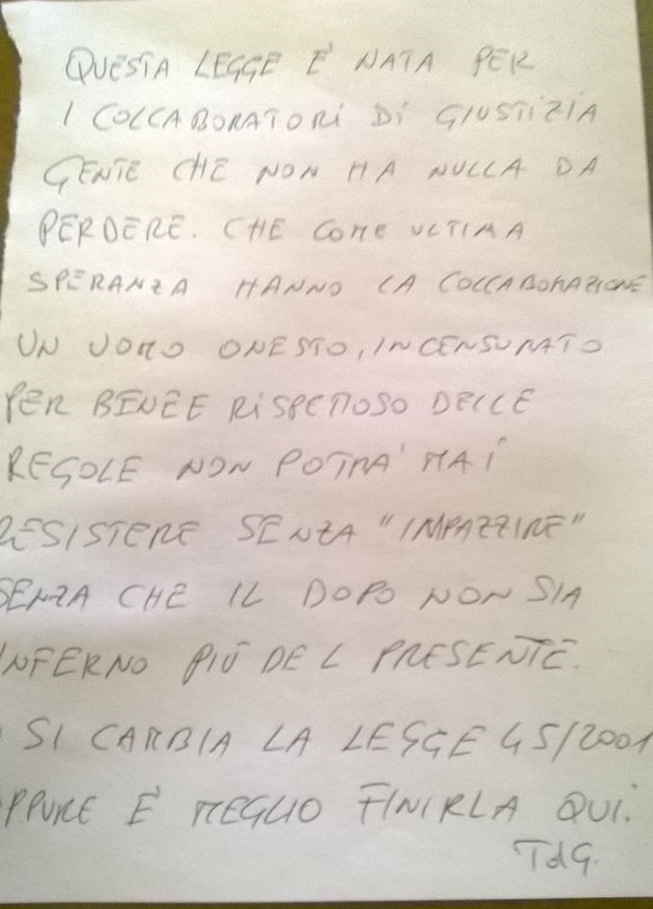 QUESTA LEGGE È NATA PER
I COLLABORATORI DI GIUSTIZIA
GENTE CHE NON HA NULLA DA
PERDERE. CHE COME ULTIMA
SPERANZA HANNO LA COLLABORAZIONE
UN UOMO ONESTO, INCENSURATO
PER BENE E RISPETTOSO DELLE
REGOLE NON POTRA' MAI
RESISTERE SENZA "IMPAZZIRE"
SENZA CHE IL DOPO NON SIA
INFERNO PIÙ DEL PRESENTE.
O SI CAMBIA LA LEGGE 45/2001
OPPURE È MEGLIO FINIRLA QUI.
TdG.